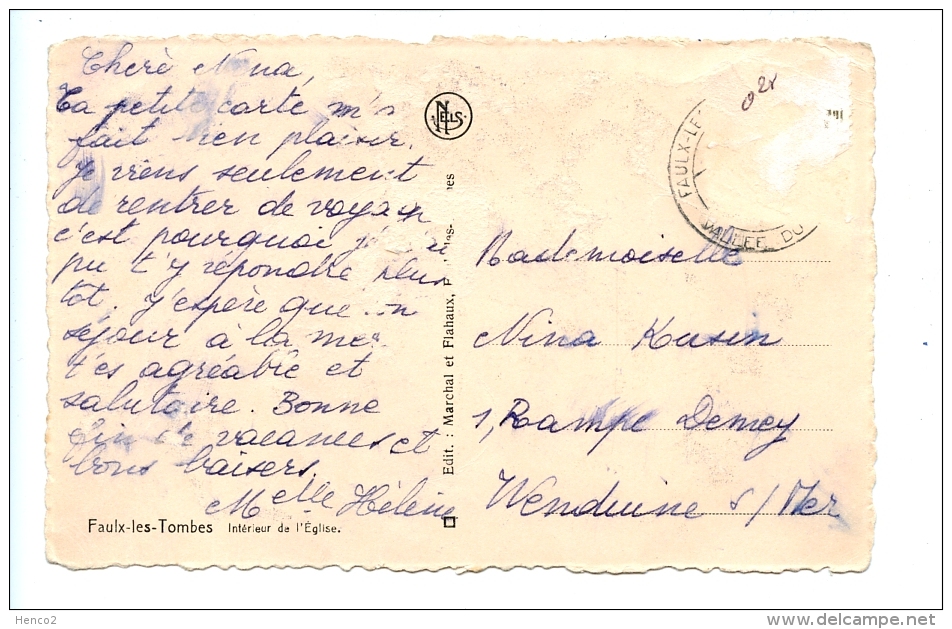 Chère Nina,
Ta petite carte m'a
fait bien plaisir.
Je viens seulement
de rentrer de voyage
c'est pourquoi j'ai
pu t'y répondre plus
tôt. J'espère que
séjour à la mer
t'es agréable et
salutaire. Bonne
fin de vacances et
bons baisers.
Melle Hélène
Faulx-les-Tombes Intérieur de l'Église.
NELS
Edit. : Marchal et Flahaux,
FAULX-LE
VALLEE DU
Mademoiselle
Nina Kusin
1, Rampe Demey
Wenduine s/Mer
Henco2
www.delcampe.net